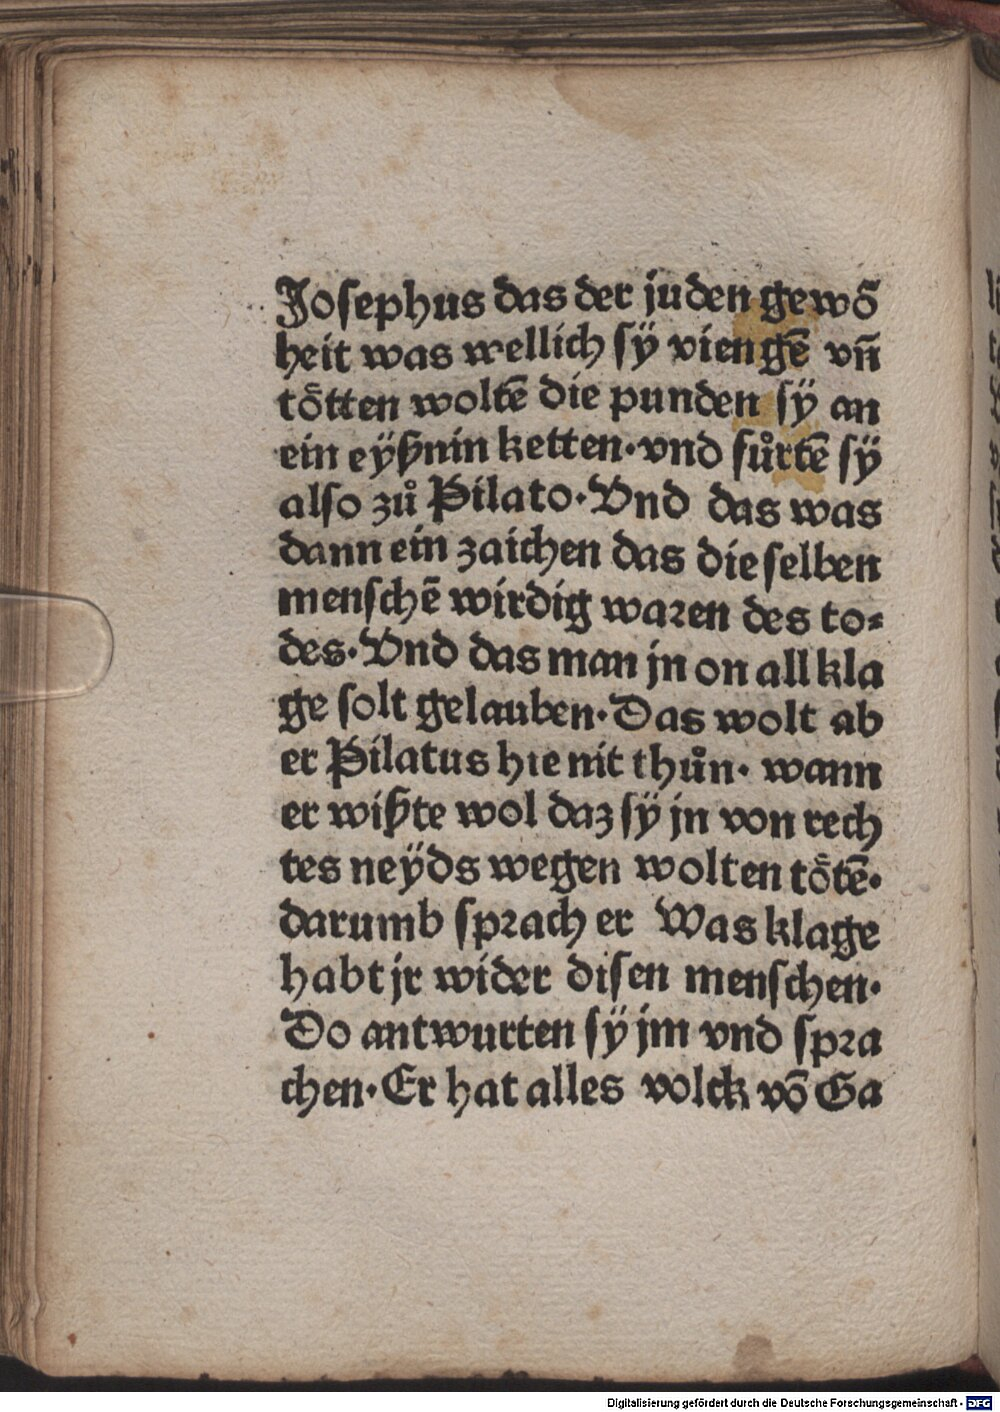 Josephus das der juden gewõ
heit was wellich sÿ viengẽ vñ
toͤtten woltẽ die punden sÿ an
ein eÿßnin ketten·vnd fuͤrtẽ sÿ
also zů Pilato·Vnd das was
dann ein zaichen das die selben
menschẽ wirdig waren des to⸗
des·Vnd das man jn on all kla
ge solt gelauben·Das wolt ab
er Pilatus hie nit thůn· wann
er wißte wol daz sÿ jn von rech
tes neÿds wegen wolten toͤtẽ·
darumb sprach er Was klage
habt jr wider disen menschen·
Do antwurten sÿ jm vnd spra
chen·Er hat alles volck võ Ga
Digitalisierung gefördert durch die Deutsche Forschungsgemeinschaft - DFG